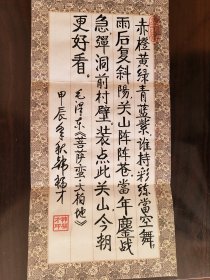 赤橙黃绿青蓝紫誰持彩練當空舞
雨后复斜陽关山阵阵苍當年鏖战
急彈洞前村壁装点此关山今朝
更好看。
毛泽东《菩萨蛮·大柏地》
甲辰